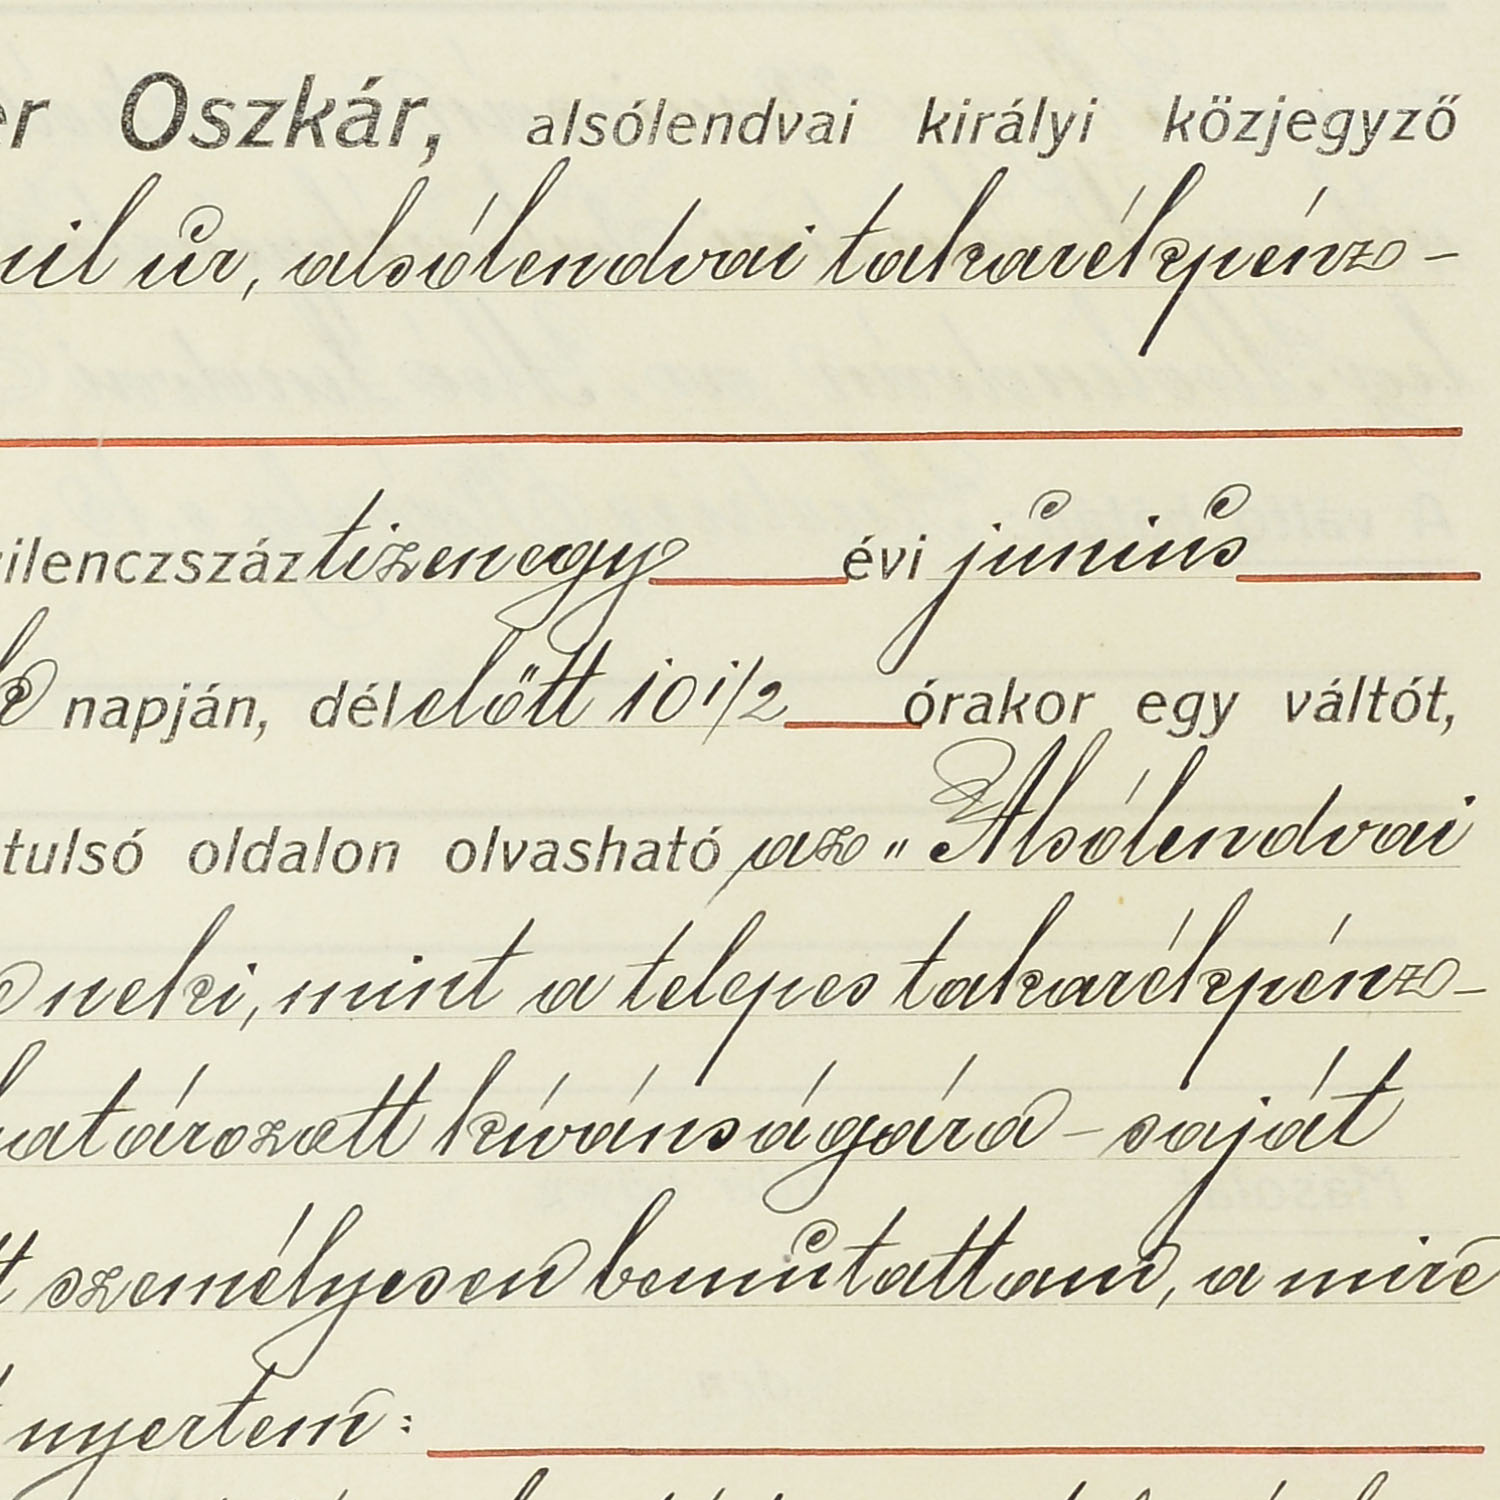 er Oszkár, alsólendvai királyi közjegyző
úr, alsólendvai takarékpénz-
ilenczszáz tizenegy évi június
napján, délelőtt 10 1/2 órakor egy váltót,
tulsó oldalon olvasható az „Alsólendvai
neki, mint a telepes takarékpénz-
határozott kívánságára - saját
személyesen bemutattam, a mire
nyertem: